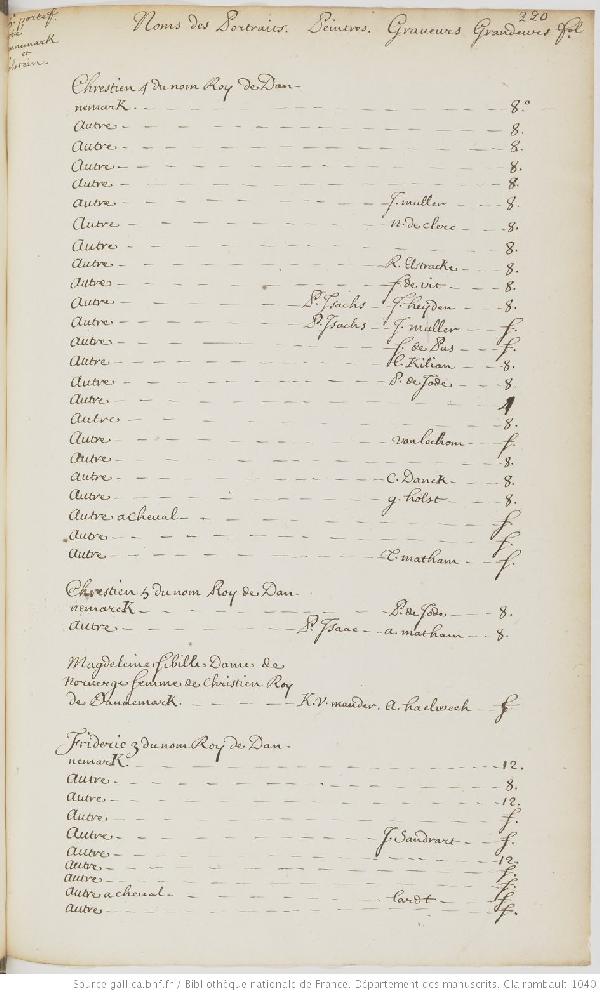 220
portef.
nnemark
et
Noms des Portraits. Peintres. Graveurs Grandeurs fol.
Chrestien 4 du nom Roy de Dan-
nemark. 8.°
Autre 8.
Autre 8.
Autre 8.
Autre 8.
Autre J. muller 8.
Autre n. de clerc 8.
Autre 8.
Autre R. Elstracke 8.
Autre f. de vit 8.
Autre P. Isachs J. heyden 8.
Autre P. Isachs J. muller f.
Autre f. de Pas f.
Autre L. Kilian 8.
Autre P. de Jode 8.
Autre 4
Autre 8.
Autre van lochom f.
Autre 8.
Autre C. Danck 8.
Autre g. holst 8.
Autre a cheval f.
Autre f.
Autre T. matham f.
Chrestien 5 du nom Roy de Dan-
nemarck P. de Jode 8.
Autre P. Isaac a. matham 8.
Magdeleine sibille Dame de
norwerge femme de Christien Roy
de Dannemark. K. V. mander. A. haelwech f
Frideric 3 du nom Roy de Dan-
nemark. 12.
Autre 8.
Autre 12.
Autre f.
Autre J. Sandrart f.
Autre 12
Autre f.
Autre f.
Autre a cheval lardt f.
Autre f.
Source gallica.bnf.fr / Bibliothèque nationale de France. Département des manuscrits. Clairambault 1040